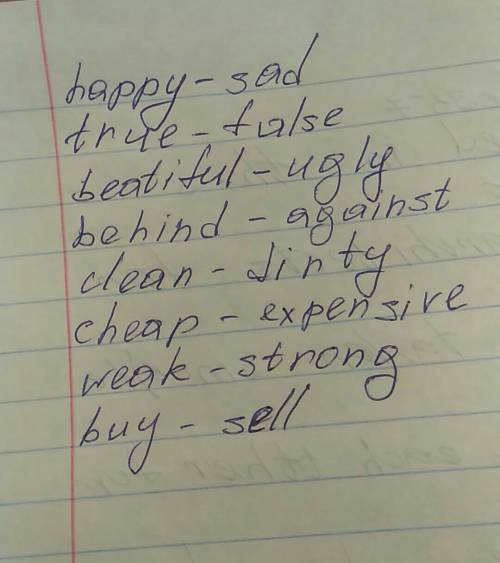 happy - sad
true - false
beatiful - ugly
behind - against
clean - dirty
cheap - expensive
weak - strong
buy - sell